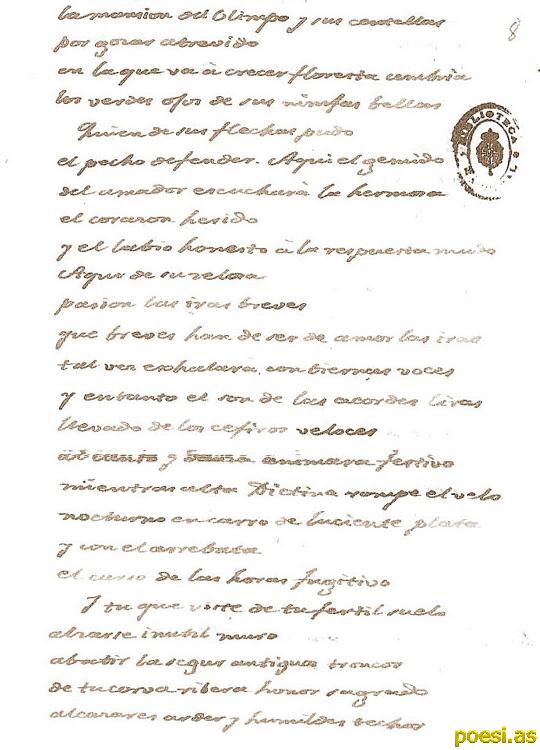 la mansion del Olimpo y sus centellas
8
por gozar atrevido
en la que va à crecer floresta umbria
los verdes ojos de sus ninfas bellas
BIBLIOTECA
Quien de sus flechas pudo
el pecho defender. Aqui el gemido
del amador escuchará la hermosa
el corazon herido
y el labio honesto à la respuesta mudo
Aqui de su zelosa
pasion las iras breves
que breves han de ser de amor las iras
tal vez exhalará con tiernas voces
y en tanto el son de las acordes liras
llevado de los cefiros veloces
al canto y danza animara festivo
mientras alta Dictina rompe el velo
nocturno en carro de luciente plata
y con el arrebata
el curso de las horas fugitivo
Y tu que viste de tu fertil suelo
alzarse inutil muro
abatir la segur antiguos troncos
de tu corva ribera honor sagrado
alcazares arder y humildes techos
poesi.as